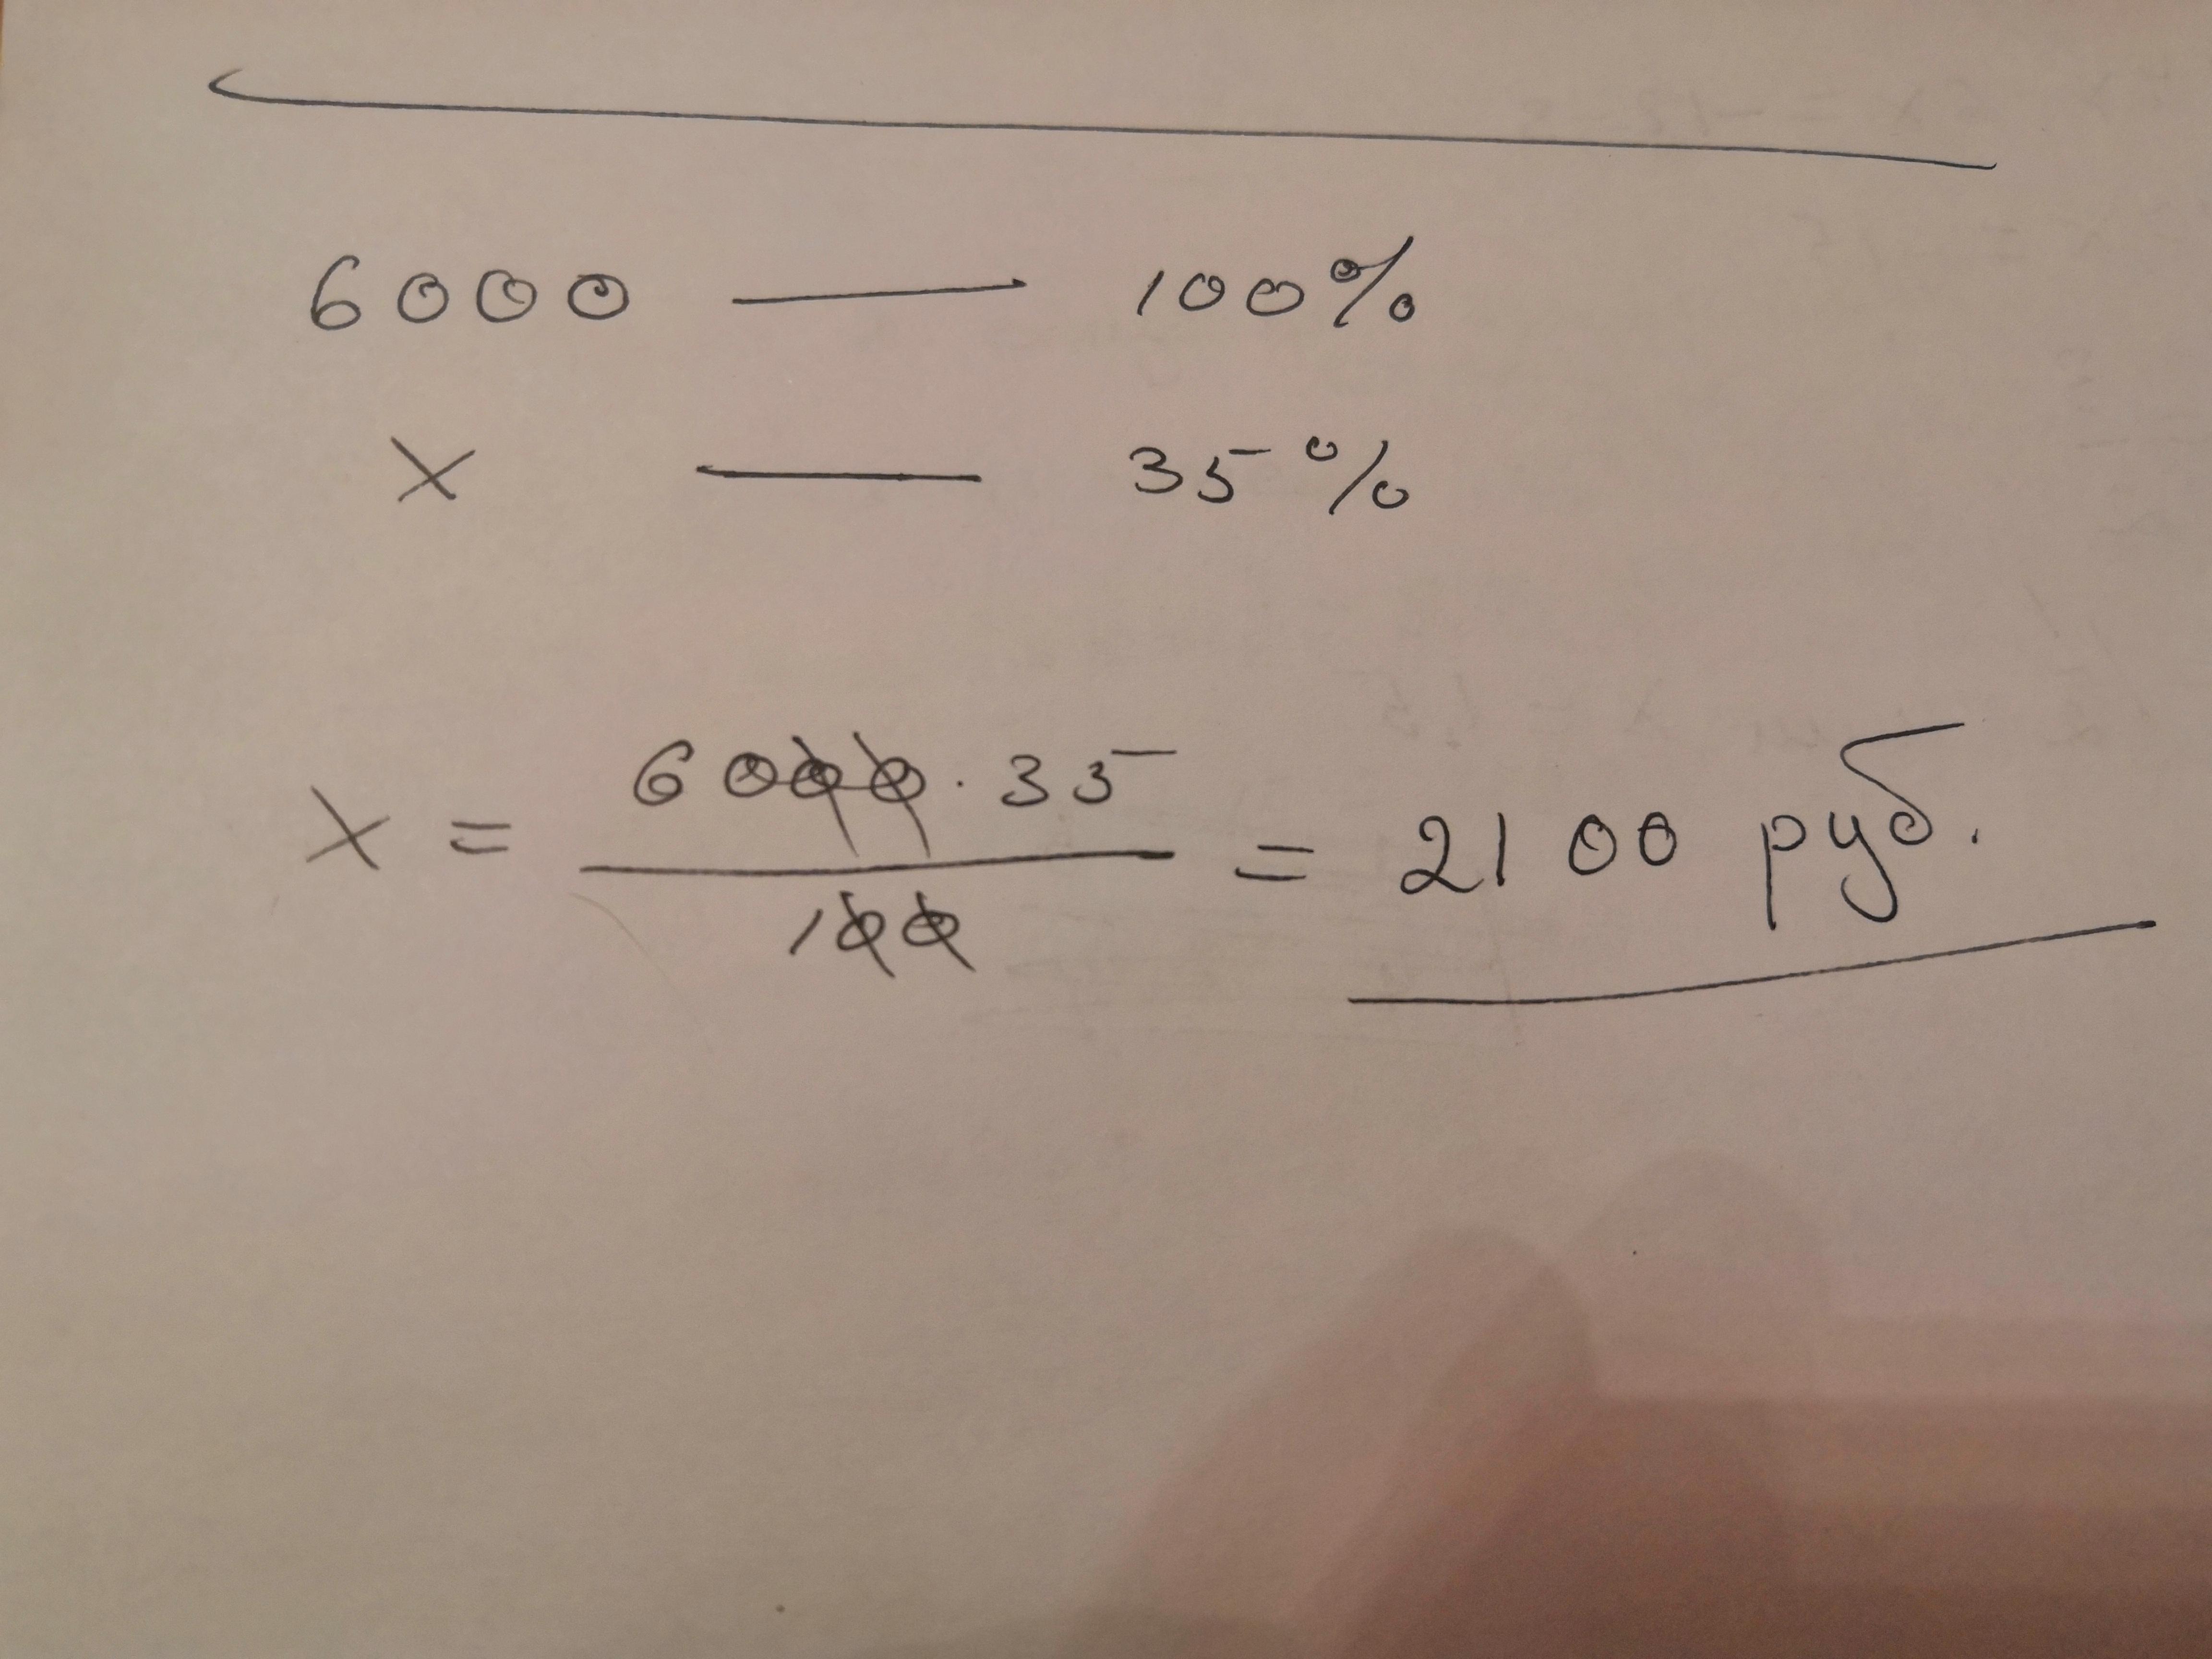 6000 — 100%
x — 35%
x = 6000 · 35 / 100 = 2100 руб.